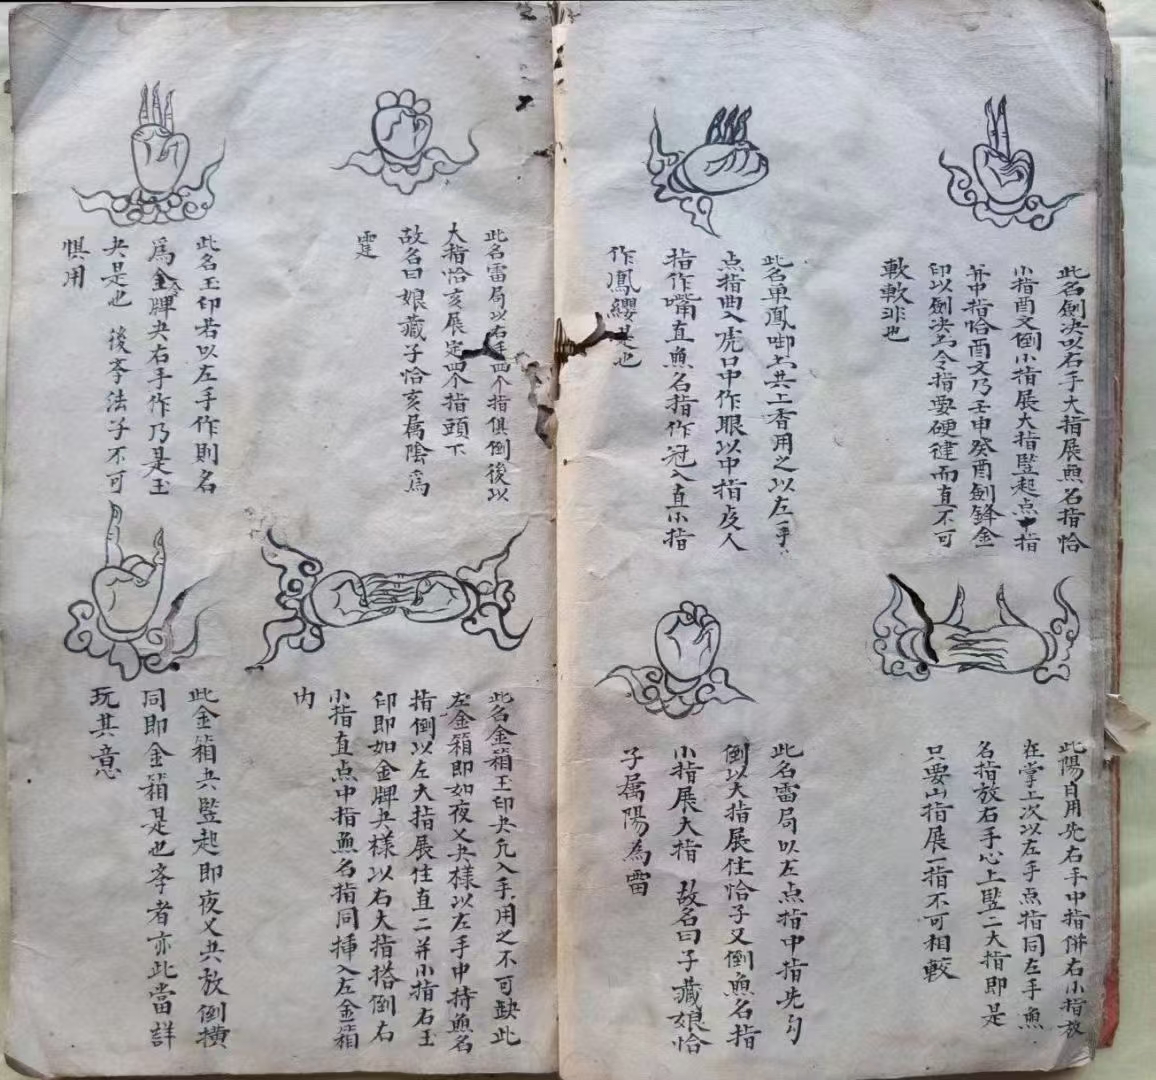 此名劍决以右手大指展無名指恰
小指酉文倒小指展大指監起点中指
并中指恰酉文乃壬申癸酉劍鋒金
印以劍决為令指要硬健而直不可
軟軟非也
此名单鳳啣共上香用之以左手
点指曲入虎口中作眼以中指皮人
指作嘴直魚名指作冠入直小指
作鳳纓是也
此陽日用先右手中指併右小指放
在掌上次以左手点指同左手魚
名指放右手心上監二大指即是
只要山指展一指不可相較
此名雷局以左点指中指先勾
倒以大指展住恰子又倒魚名指
小指展大指 故名曰子藏娘恰
子属陽為雷
此名雷局以右手四个指俱倒後以
大指恰亥展定四个指頭下
故名曰娘藏子恰亥属陰為
霆
此名玉印若以左手作則名
為金牌夬右手作乃是玉
夬是也 後斈法子不可
惧用
此名金箱玉印夬凢入手用之不可缺此
左金箱即如夜乂夬様以左手中持魚名
指倒以左大指展住直二并小指右玉
印即如金牌夬様以右大指搭倒右
小指直点中指魚名指同揷入左金箱
内
此金箱夬監起即夜乂夬放倒横
同即金箱是也斈者亦此當詳
玩其意